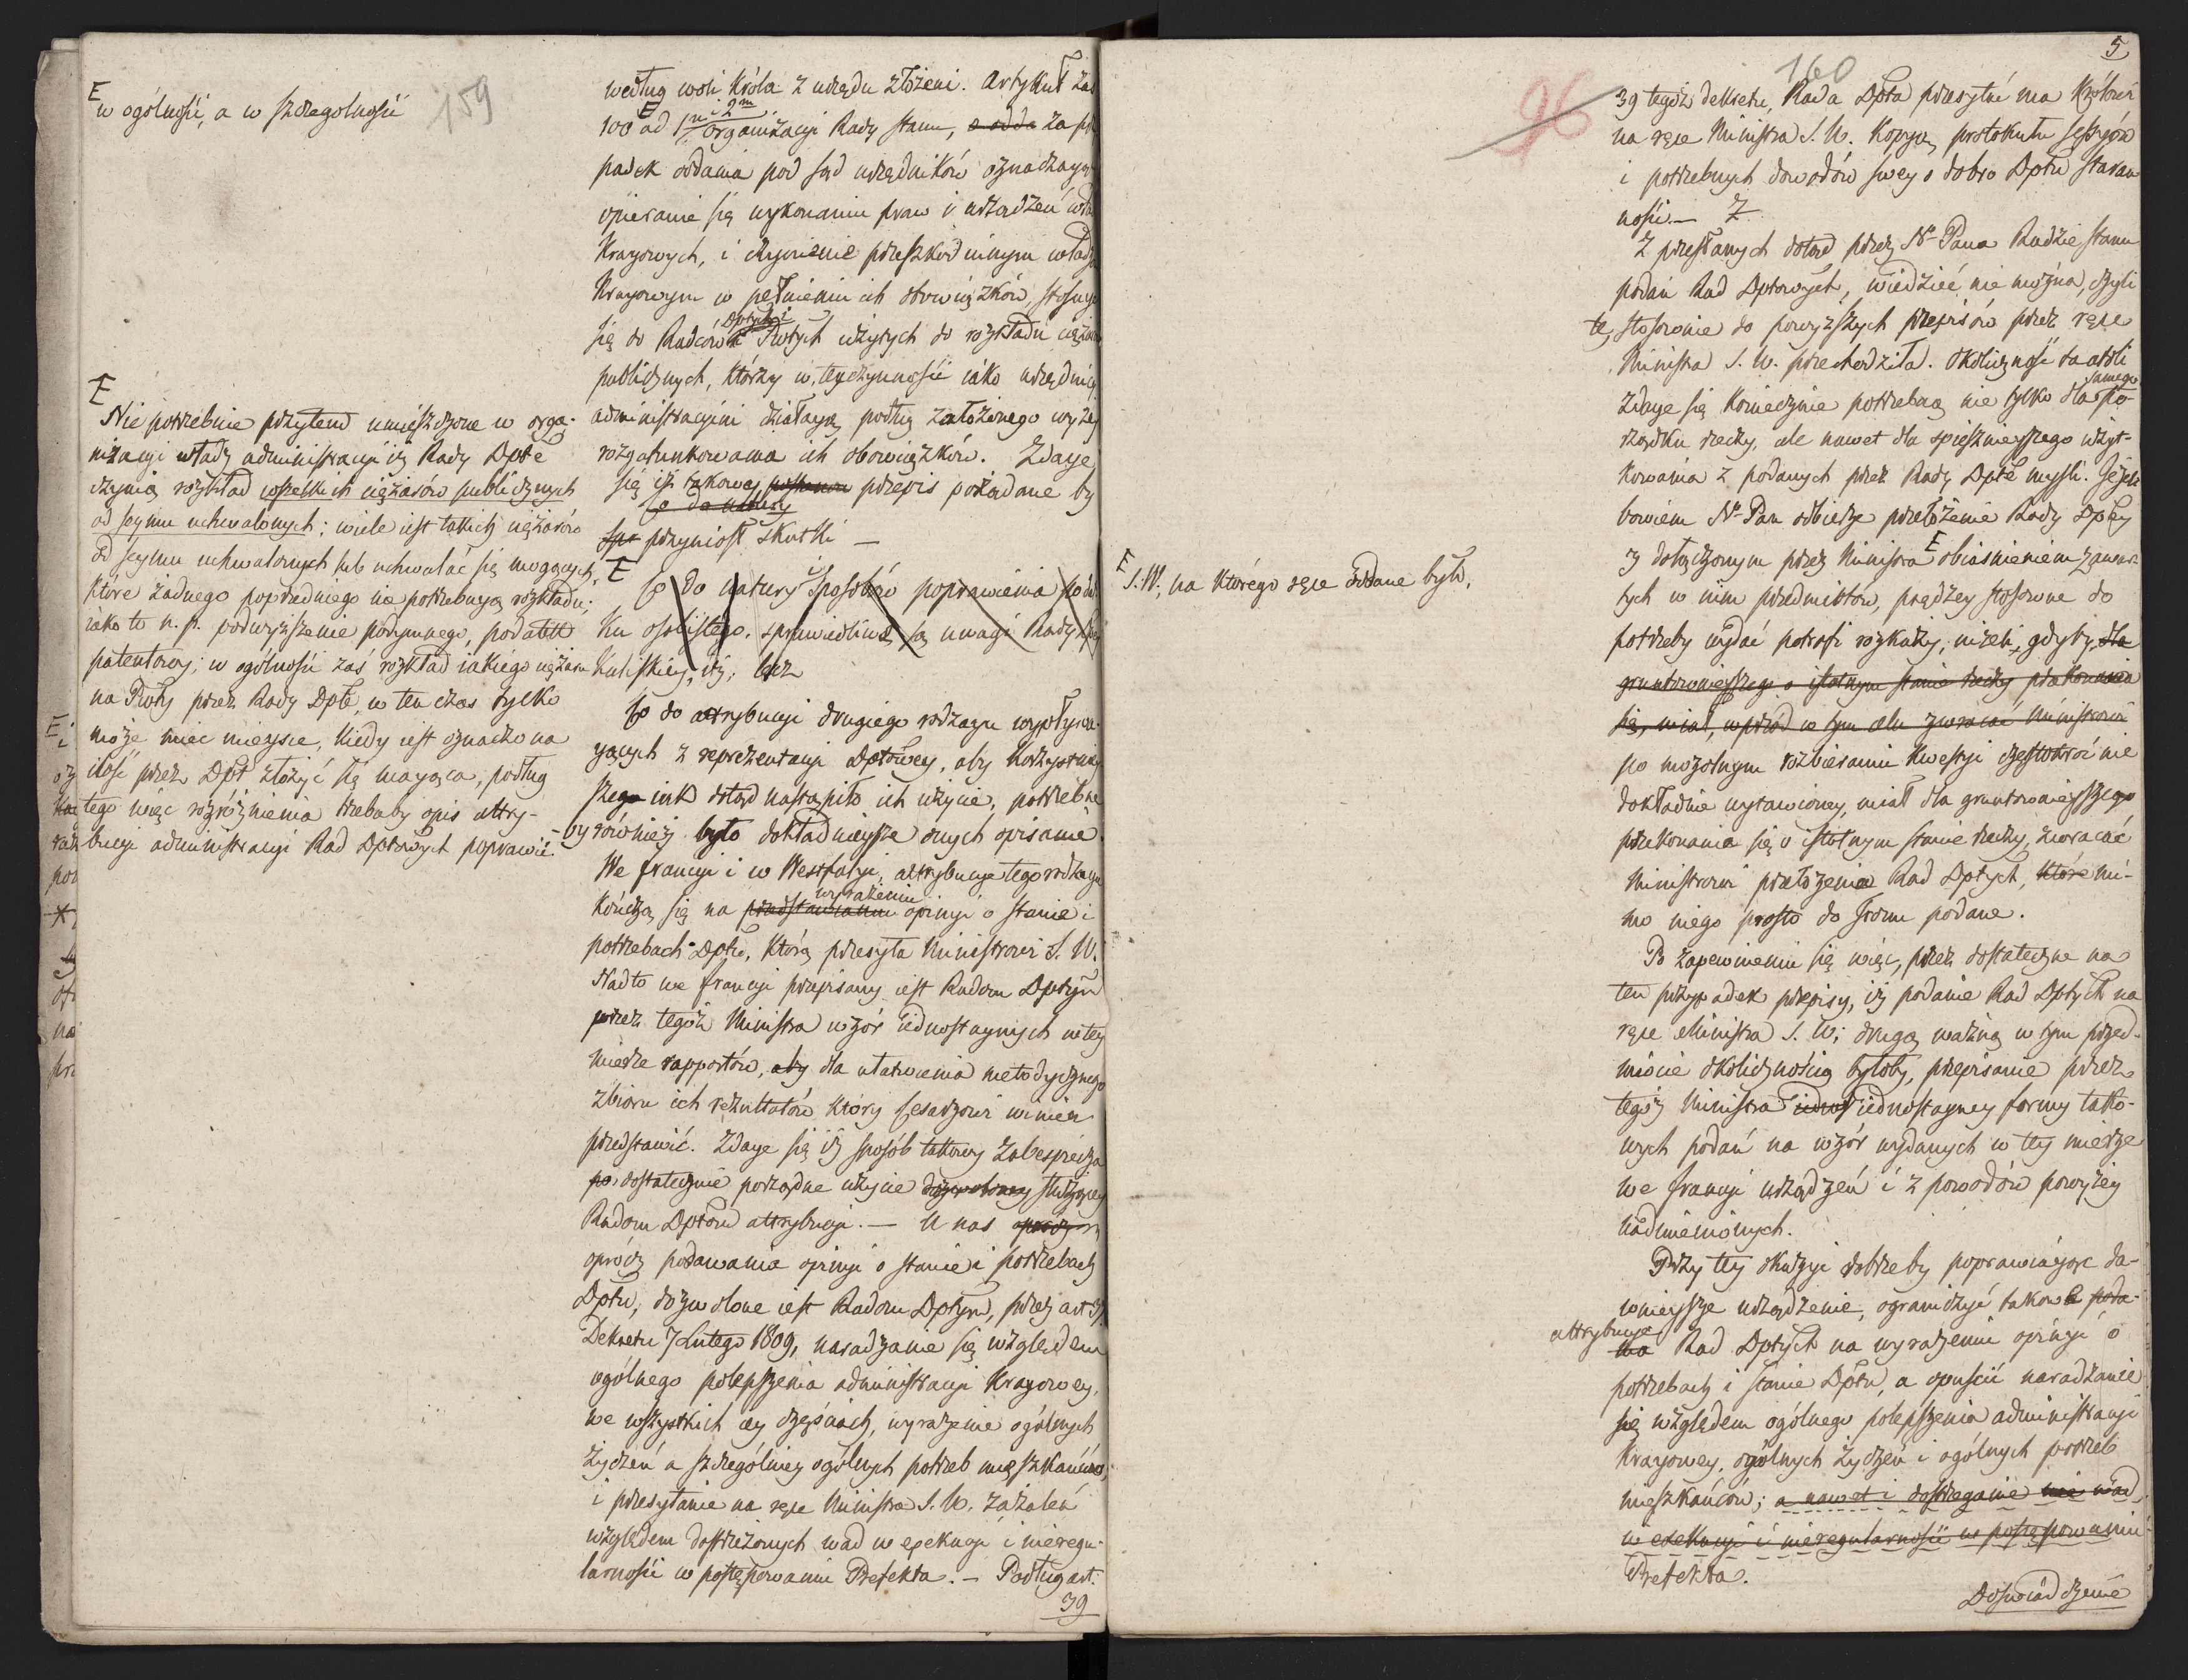 E w ogólności, a w szczególności
159
E
Nie potrzebnie przytem umieszczone w orga-
nizacyi władz administracyi iż Rady Dptłe
czynią rozkład wszelkich ciężarów publicznych
od seymu uchwalonych; wiele iest takich ciężarów
od seymu uchwalonych lub uchwalać się mogących,
które żadnego poprzedniego nie potrzebuią rozkładu;
iako to n. p. podwyższenie podymnego, podatek
patentowy; w ogólności zaś rozkład iakiego ciężaru
na Pwty przez Rady Dptłe, w ten czas tylko
może mieć mieysce, kiedy iest oznaczona
ilość przez Dpt złożyć się maiąca, podług
tego więc rozróżnienia trzebaby opis attry-
bucyi administracyi Rad Dptowych poprawić.
według woli Króla z urzędu złożeni. Artykuł zaś
E
100 ad 1m i 2m organizacyi Rady stanu, e odda za przy
padek oddania pod sąd urzędników oznaczaiący
opieranie się wykonaniu praw i urządzeń władz
Kraiowych, i czynienie przeszkód innym władzom
Kraiowym w pełnieniu ich obowiązków, stosuye
Dptych i
się do Radców Pwtych użytych do rozkładu ciężarów
publicznych, którzy w tey czynności iako urzędnicy
administracyini działaią podług założonego wyżey
rozgatunkowania ich obowiązków. Zdaye
się iż takowy przepis pożądane by
Co do natury
spr przyniósł skutki —
E
Co do natury i sposobów poprawienia podat
ku osobistego, sprawiedliwe są uwagi Rady Dptey
Kaliskiey, iż, bez
Co do attrybucyi drugiego rodzayu wypływa-
yących z reprezentacyi Dptowey, aby korzystniey
szego iak dotąd nastąpiło ich użycie, potrzebne
by również było dokładnieysze onych opisanie.
We francyi i w Westfalyi, attrybucye tego rodzayu
wyrażeniu
kończą się na przedstawianiu opinyi o stanie i
potrzebach Dptu, którą przesyła Ministrowi S. W.
Nadto we francyi przepisany iest Radom Dptłym
przez tegoż Ministra wzór iednostaynych w tey
mierze rapportów, aby dla ułatwienia metodycznego
zbioru ich rezultatów który Cesarzowi winien
przedstawić. Zdaye się iż sposób takowy zabespiecza
po dostatecznie porządne użycie dozwoloney służącey
Radom Dptowem attrybucyi. — U nas oprócz
oprócz podawania opinyi o stanie i potrzebach
Dptu, dozwolone iest Radom Dptym, przez art 37.
Dekretu 7 Lutego 1809, naradzanie się względem
ogólnego polepszenia administracyi Kraiowey,
we wszystkich iey częściach, wyrażenie ogólnych
życzeń a szczególniey ogólnych potrzeb mięszkańców,
i przesyłanie na ręce Ministra S. W. zażaleń
względem dostrzeżonych wad w exekucyi i nieregu-
larności w postępowaniu Prefekta. — Podług art.
39
5
160
96
39 tegoż dekretu, Rada Dptła przesyłać ma Królowi
na ręce Ministra S. W. kopyą protokułu sessyów
i potrzebnych dowodów swey o dobro Dptłu staran
ności. —
Z przesłanych dotąd przez N. Pana Radzie stanu
podań Rad Dptowych, wiedzieć nie można, czyli
te, stosownie do powyższych przepisów przez ręce
Ministra S. W. przechodziła. Okoliczność ta atoli
samego
zdaye się koniecznie potrzebną nie tylko dla po-
rządku rzeczy, ale nawet dla spieszniejszego użyt-
kowania z podanych przez Rady Dptłe myśli. Jeżeli
bowiem N. Pan odbierze przełożenie Rady Dptey
z dołączonym przez Ministra E obiaśnieniem zawar
tych w nim przedmiotów, prędzey stosowne do
potrzeby wydać potrafi rozkazy, niżeli, gdyby, dla
gruntownieyszego o istotnym stanie rzeczy przekonania
się, miał, w przód w tym celu zwracać Ministrowi
po mozolnym rozbieraniu kwestyi częstokroć nie
dokładnie wystawioney, miał dla gruntownieyszego
przekonania się o istotnym stanie rzeczy, zwracać
Ministrowi przełożenia Rad Dptych, które mi-
mo niego prosto do tronu podane.
Po zapewnieniu się więc, przez dostateczne na
ten przypadek przepisy, iż podanie Rad Dptych na
ręce Ministra S. W; drugą ważną w tym przed-
miocie okolicznością byłoby, przepisanie przez
tegoż Ministra iednost iednostayney formy tako-
wych podań na wzór wydanych w tey mierze
we francyi urządzeń i z powodów powyżey
nadmienionych.
Przy tey okazyi trzebaby poprawiaiąc da-
wnieysze urządzenie, ograniczyć takowe poda-
attrybucye
nia Rad Dptych na wyrażeniu opinyi o
potrzebach i stanie Dptu, a opuścić naradzanie
się względem ogólnego polepszenia administracyi
Kraiowey, ogólnych życzeń i ogólnych potrzeb
mięszkańców; a nawet i dostrzeganie wad
w exekucyi i nieregularności w postępowaniu
Prefekta.
Doświadczenie
E S. W, na którego ręce oddane było,